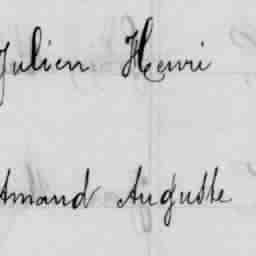 Julien Henri
Amand Auguste